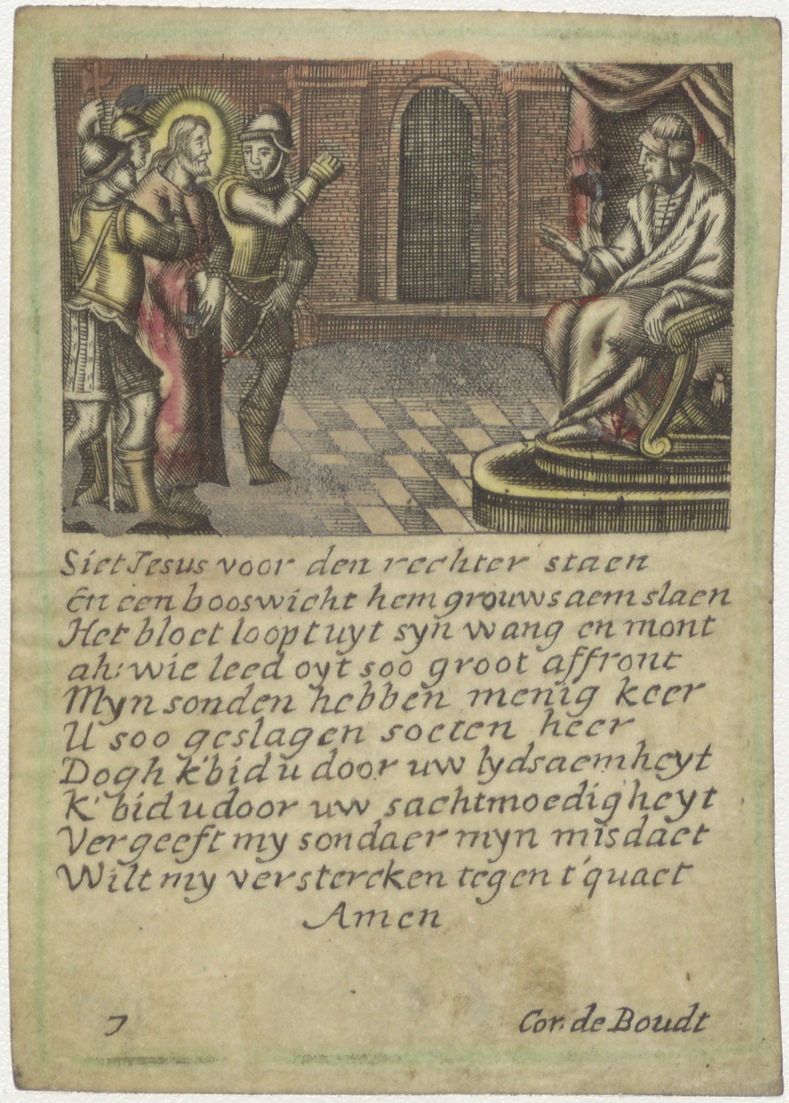 Siet Jesus voor den rechter staen
En een booswicht hem grouwsaem slaen
Het bloet loopt uyt syn wang en mont
ah: wie leed oyt soo groot affront
Myn sonden hebben menig keer
U soo geslagen soeten heer
Dogh k'bid u door uw lydsaemheyt
K' bid u door uw sachtmoedigheyt
Vergeeft my sondaer myn misdaet
Wilt my verstercken tegen t'quaet
Amen
7 Cor. de Boudt